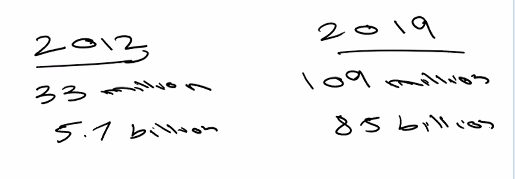 2012
33 million
5.7 billion
2019
109 million
85 billion